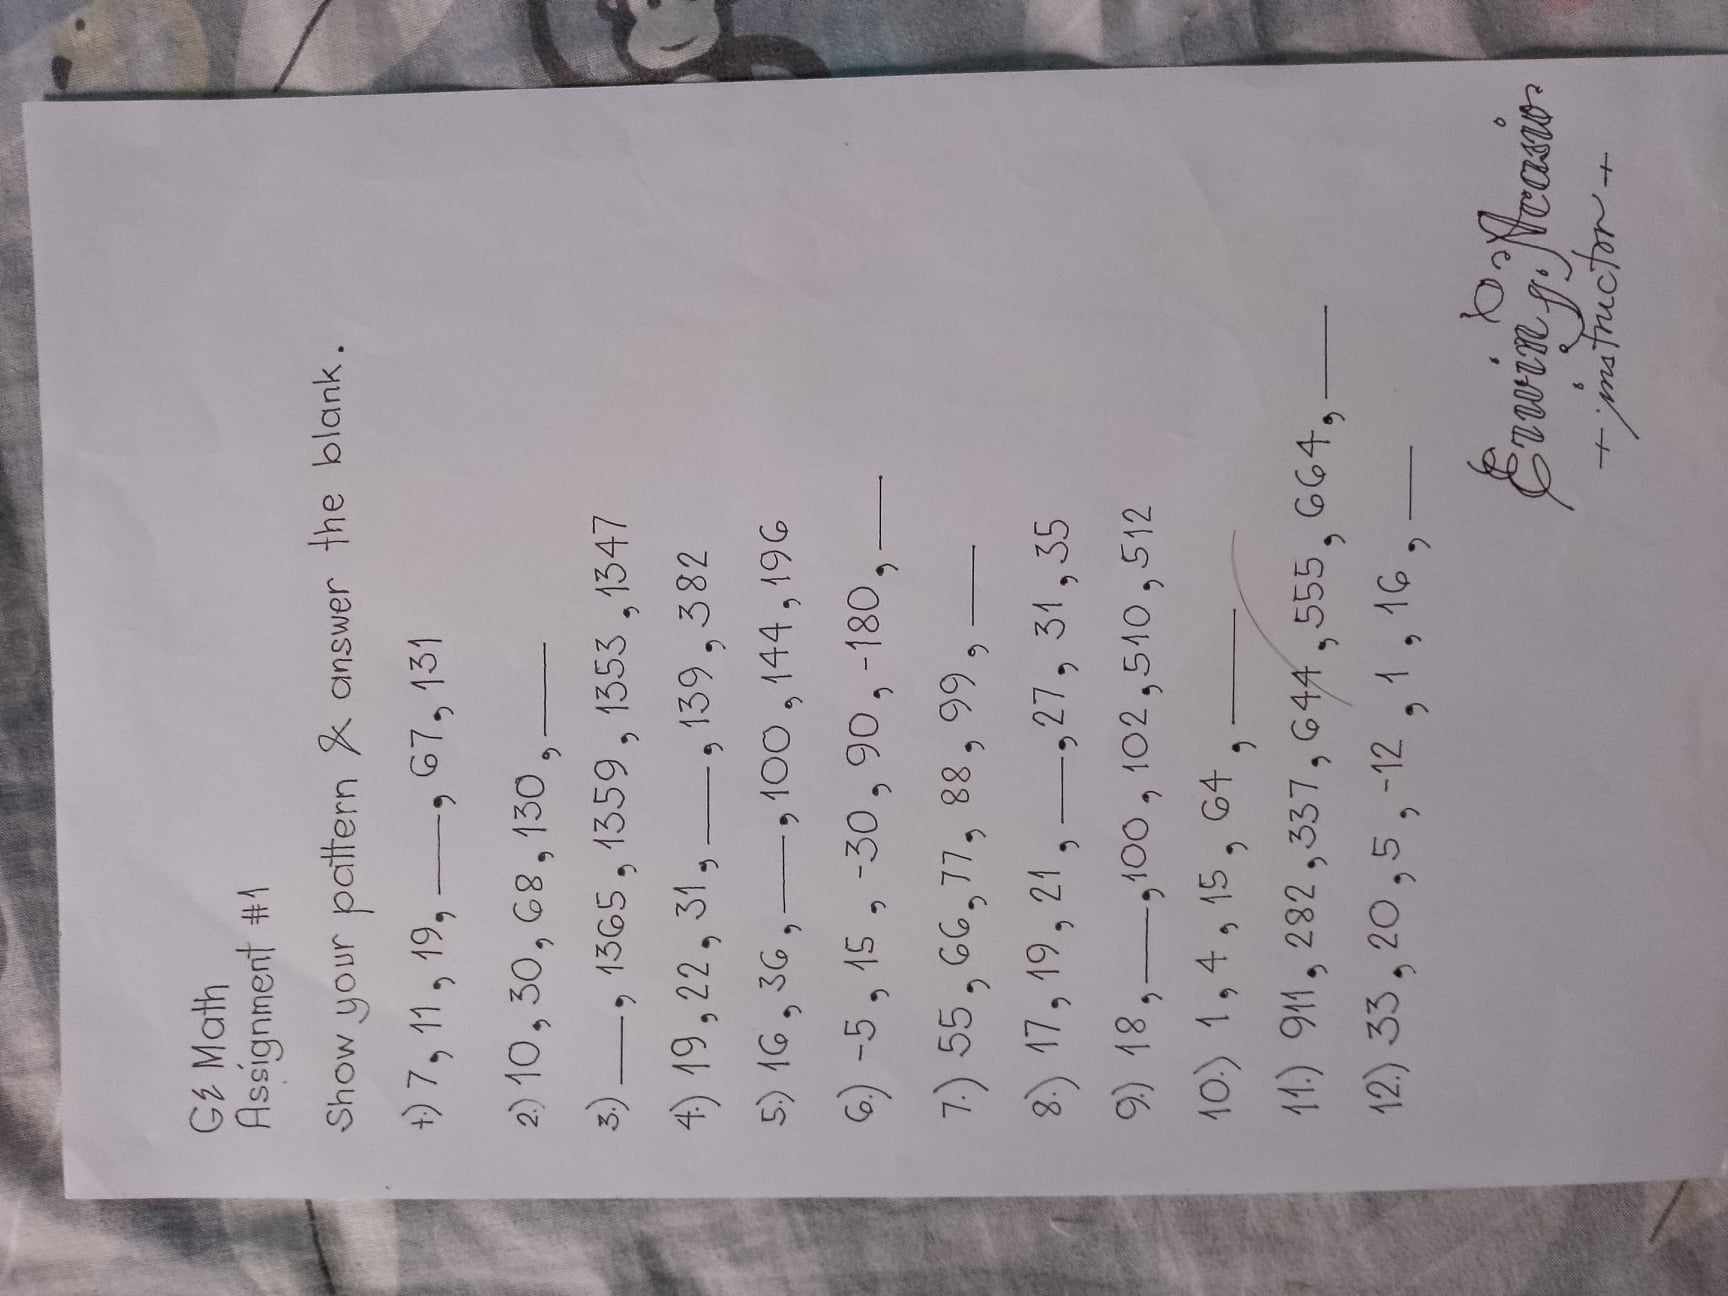 GE Math
Assignment #1
Show your pattern & answer the blank.
1.) 7, 11, 19, ___, 67, 131
2.) 10, 30, 68, 130, ___
3.) ___, 1365, 1359, 1353, 1347
4.) 19, 22, 31, ___, 139, 382
5.) 16, 36, ___, 100, 144, 196
6.) -5, 15, -30, 90, -180, ___
7.) 55, 66, 77, 88, 99, ___
8.) 17, 19, 21, ___, 27, 31, 35
9.) 18, ___, 100, 102, 510, 512
10.) 1, 4, 15, 64, ___
11.) 911, 282, 337, 644, 555, 664, ___
12.) 33, 20, 5, -12, 1, 16, ___
Erwin J. Acasio
instructor